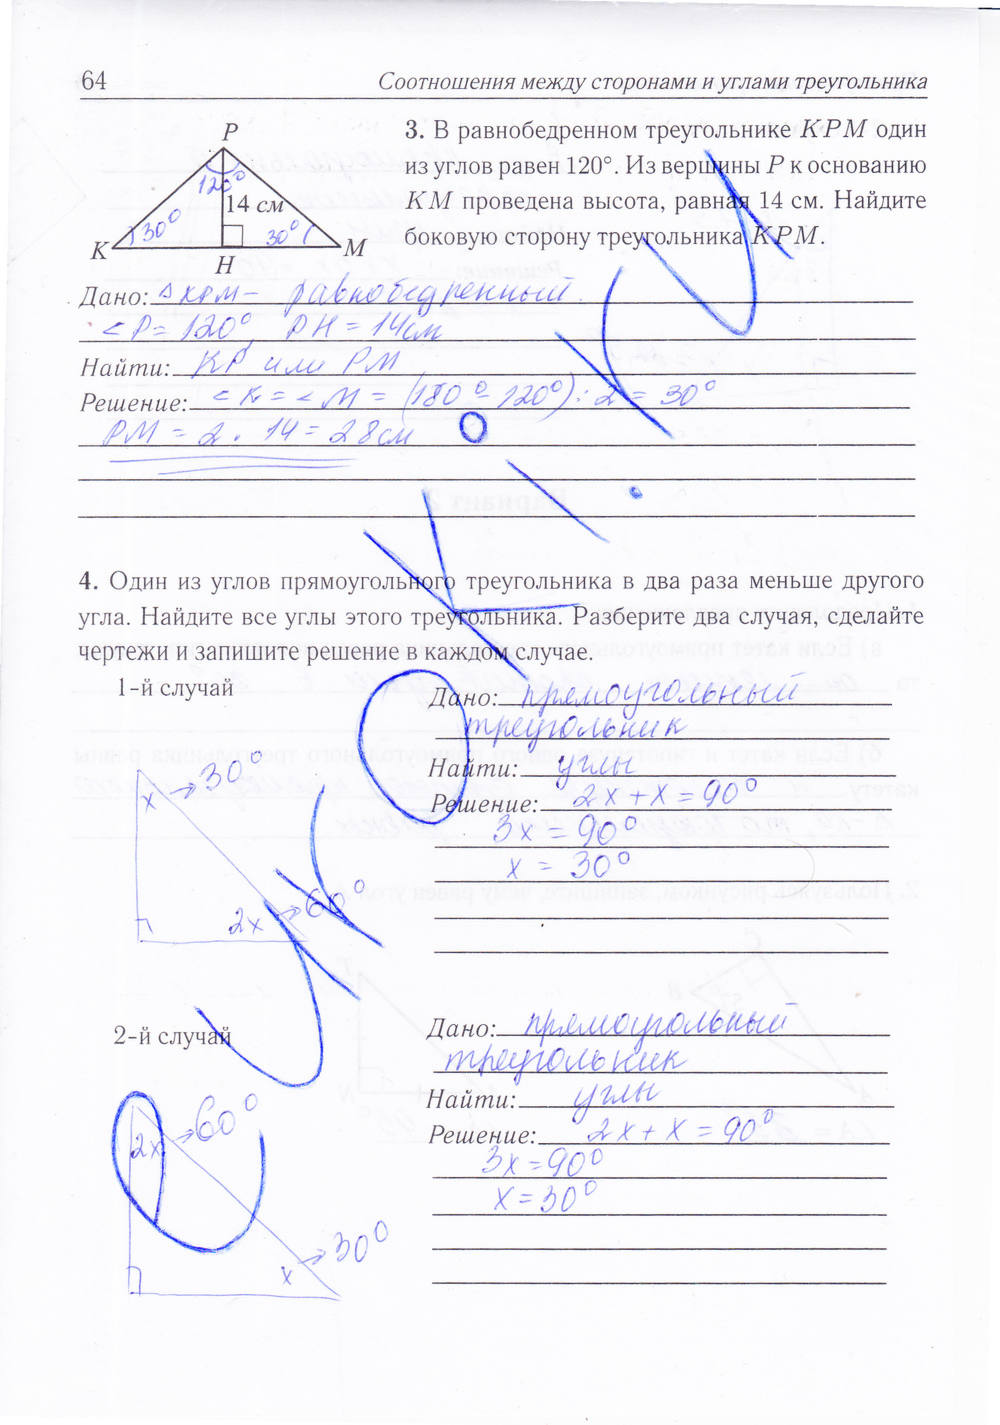 64
Соотношения между сторонами и углами треугольника
3. В равнобедренном треугольнике KPM один
из углов равен 120°. Из вершины P к основанию
KM проведена высота, равная 14 см. Найдите
боковую сторону треугольника KPM.
P
120°
14 см
30°
30°
K
H
M
Дано: Δ KPM – равнобедренный
∠P = 120°, PH = 14 см
Найти: KP или PM
Решение: ∠K = ∠M = (180° - 120°) : 2 = 30°
PM = 2 · 14 = 28 см
4. Один из углов прямоугольного треугольника в два раза меньше другого
угла. Найдите все углы этого треугольника. Разберите два случая, сделайте
чертежи и запишите решение в каждом случае.
1-й случай
x → 30°
2x → 60°
Дано: прямоугольный
треугольник
Найти: углы
Решение: 2x + x = 90°
3x = 90°
x = 30°
2-й случай
2x → 60°
x → 30°
Дано: прямоугольный
треугольник
Найти: углы
Решение: 2x + x = 90°
3x = 90°
x = 30°